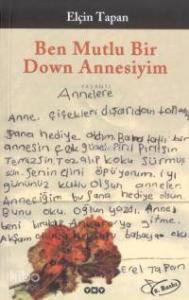 Elçin Tapan
Ben Mutlu Bir
Down Annesiyim
YAŞANTI
Annelere
Anne, çiçekleri dışarıdan topla
Sana hediye aldım. Bana tatlı bir
annesin çok güzel. Pırıl Pırılsın
Temizsin Toz alıp koku sürmüş
sün. Senin elini öpüyorum. iyi
gününüz kutlu olsun anneler.
Anneciğim bu sana hediye olsun.
Bunu oku. Oğlun yazdı.
beni bırak Ankara'ya gitme.
Akşam
babaya oku.
Erel Tapan
8. Baskı
YKY